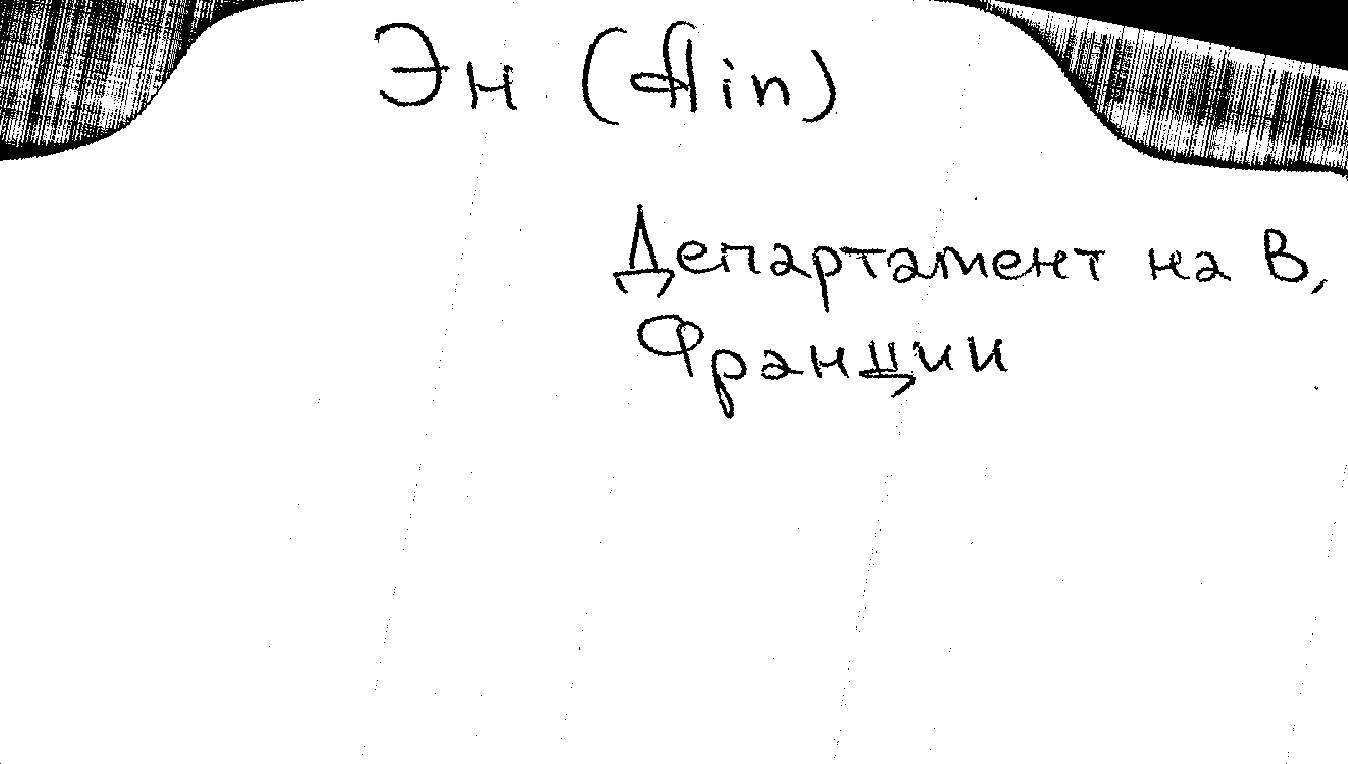 Эн (Ain)
Департамент на В,
Франции